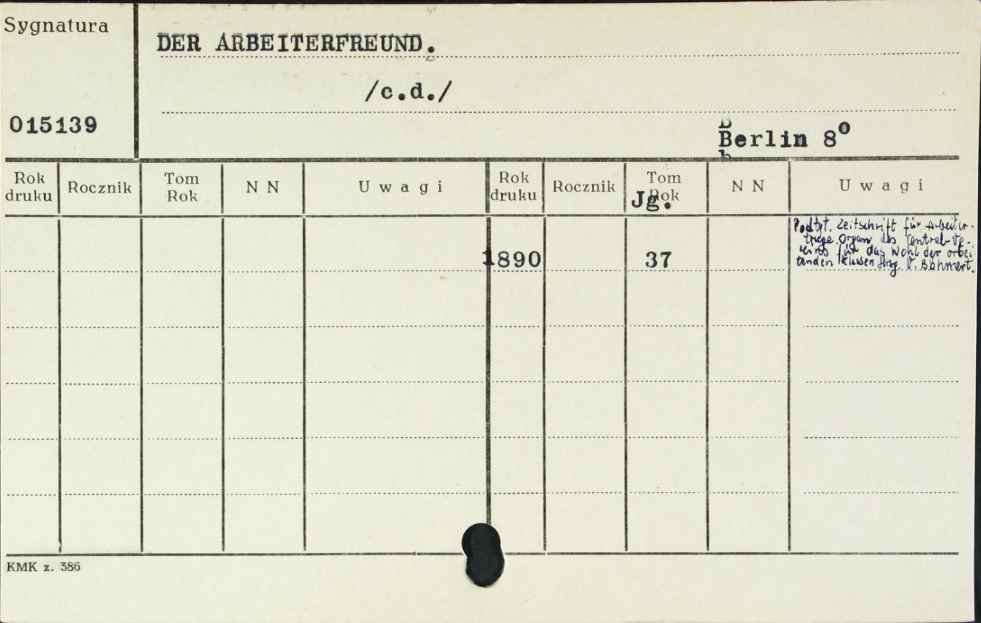 Sygnatura
DER ARBEITERFREUND.
/c.d./
015139
Berlin 8⁰
Rok druku Rocznik Tom Rok N N U w a g i Rok druku Rocznik Tom Rok N N U w a g i
Jg.
1890 37
Podtyt. Zeitschrift für Arbeiter-
frage. Organ des Central-Ve-
reins für das Wohl der arbei-
tenden Klassen Hrg. V. Böhmert.
KMK z. 386